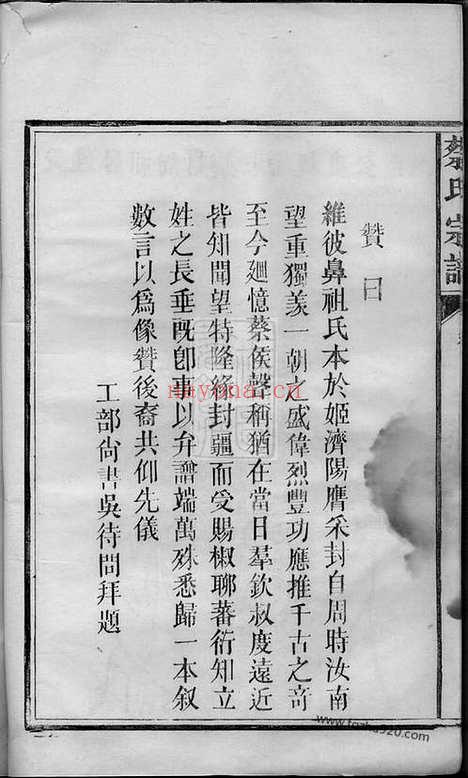 蔡氏宗譜
贊曰
維彼鼻祖氏本於姬濟陽膺采封自周時汝南
望重獨羨一朝之盛偉烈豐功應推千古之奇
至今廻憶蔡侯聲稱猶在當日羣欽叔度遠近
皆知聞望特隆緣封疆而受賜椒聊蕃衍知立
姓之長垂旣卽事以弁譜端萬殊悉歸一本叙
數言以爲像贊後裔共仰先儀
工部尚書吳待問拜題
nayona.cn
www.fozhu920.com